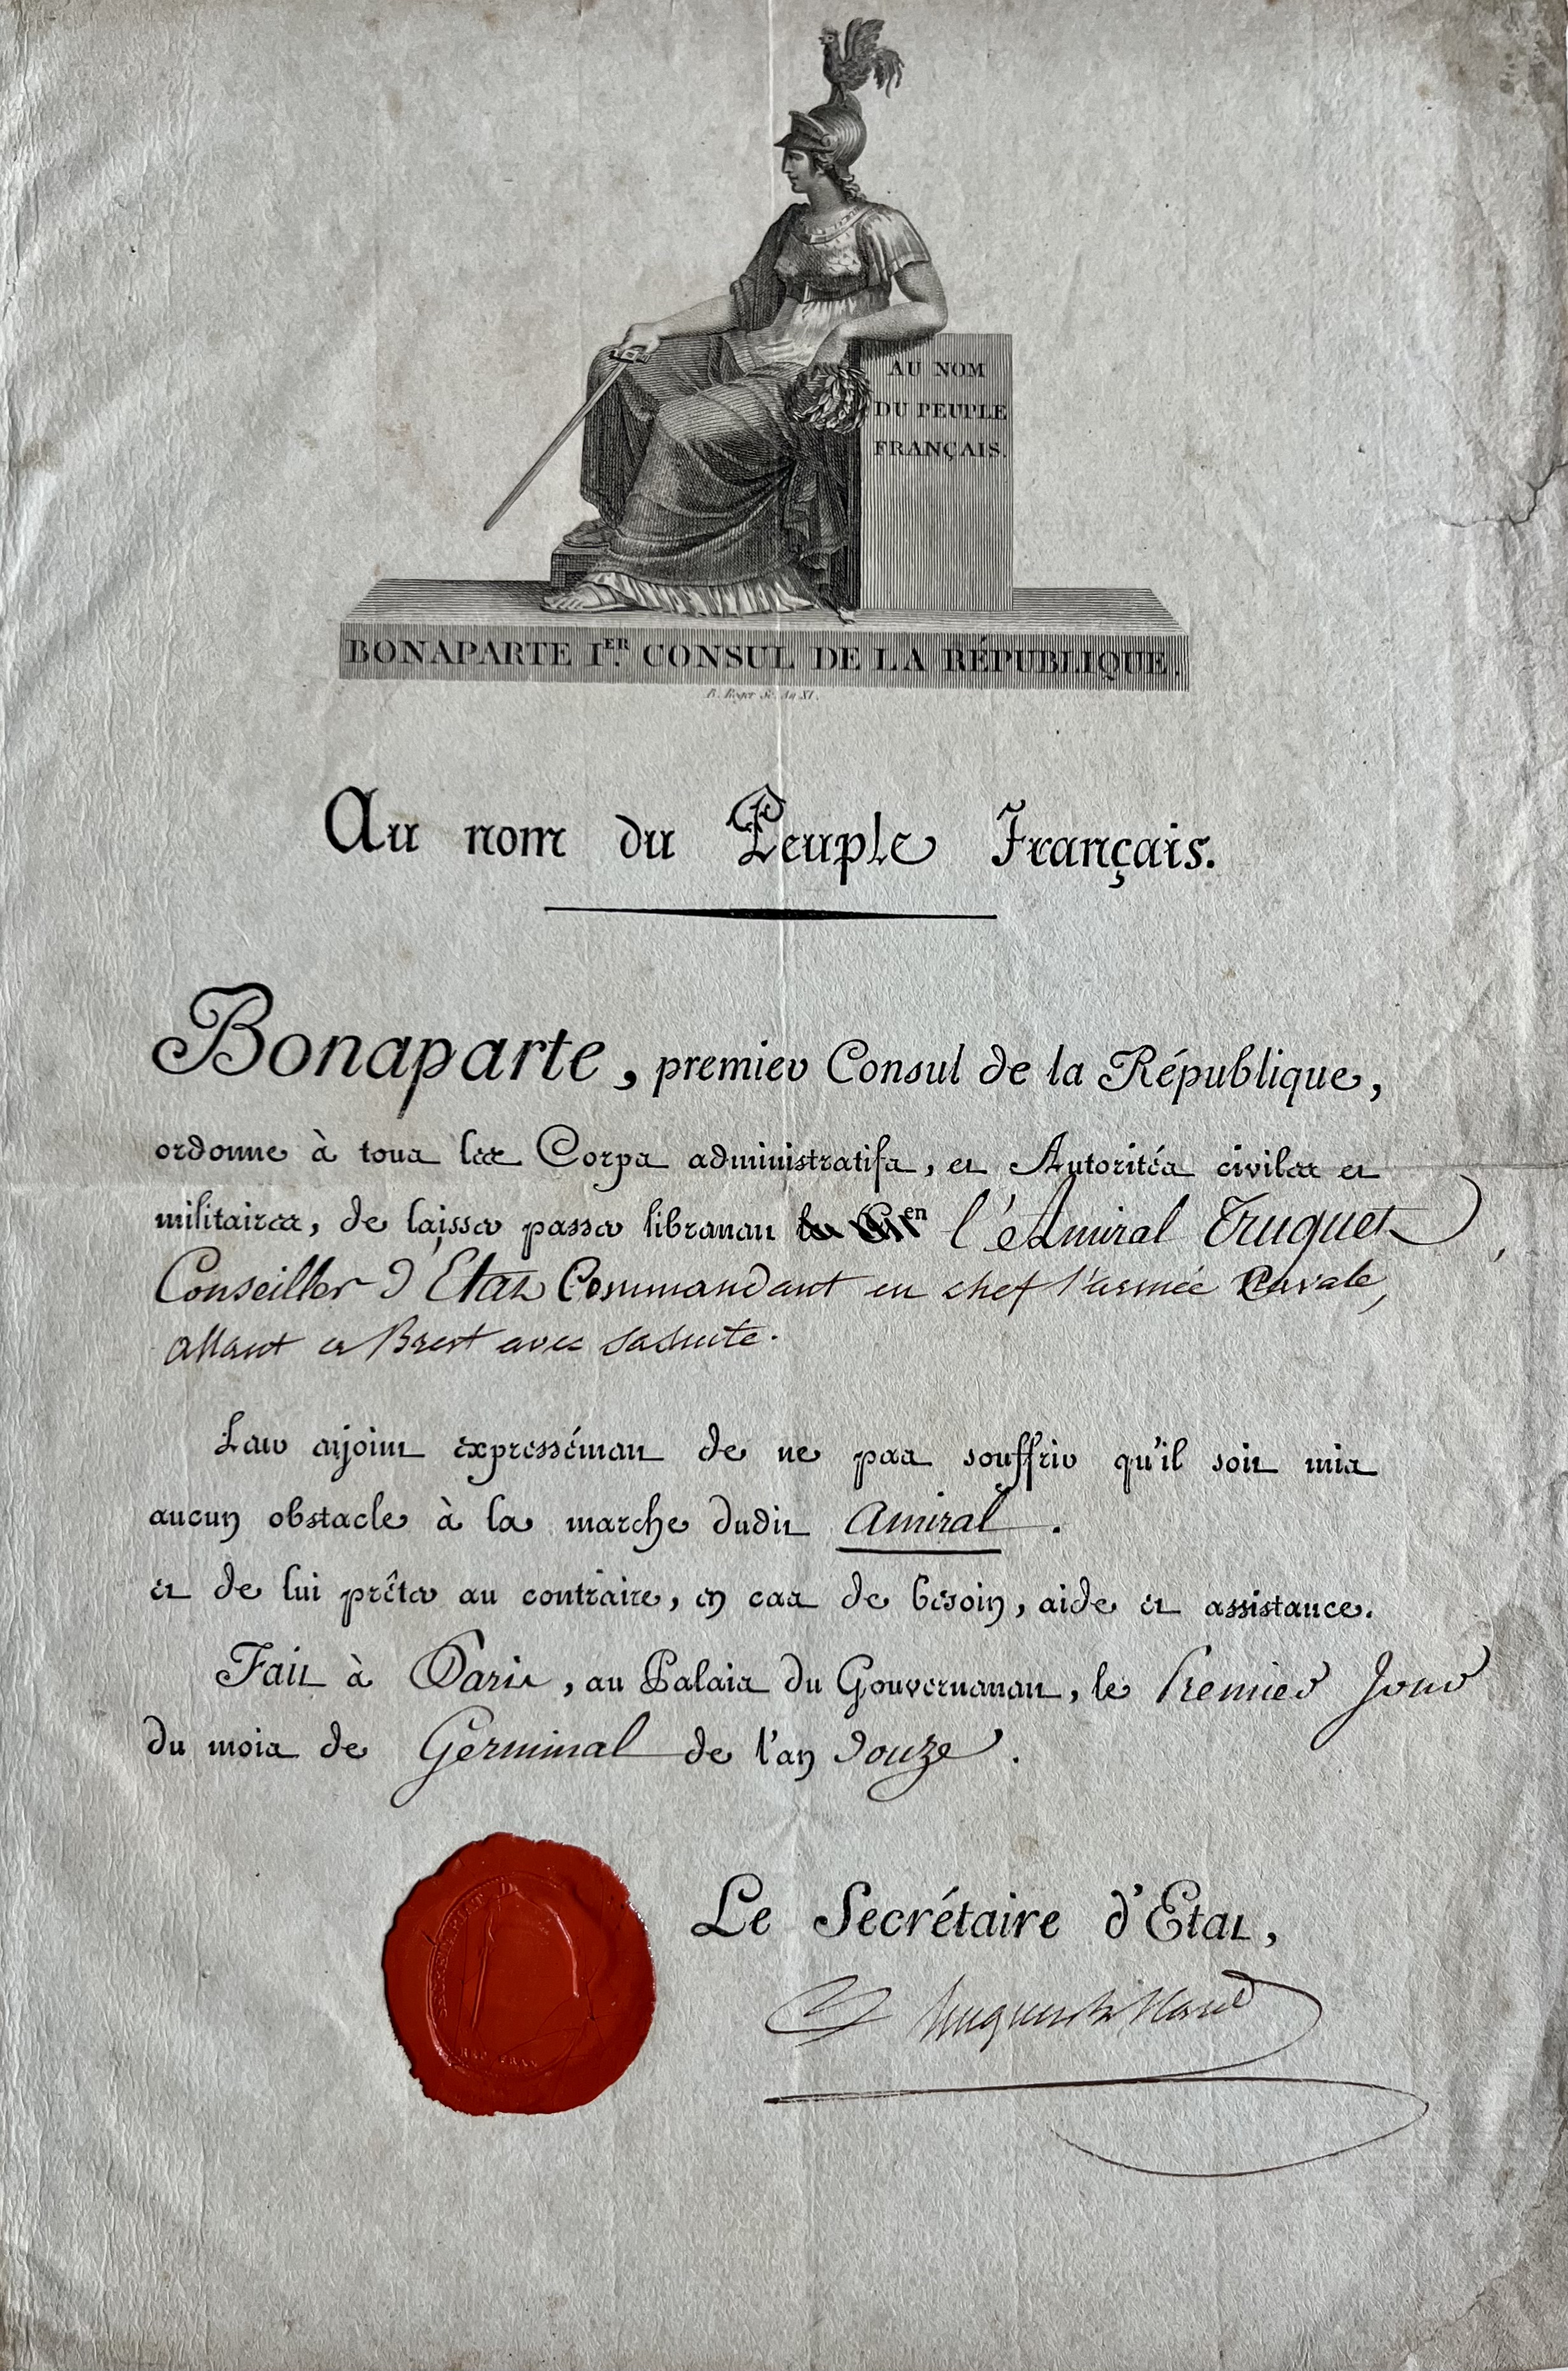 AU NOM
DU PEUPLE
FRANÇAIS.
BONAPARTE I.ER CONSUL DE LA RÉPUBLIQUE.
B. Roger Sc. An XI.
Au nom du Peuple Français.
Bonaparte, premier Consul de la République,
ordonne à tous les Corps administratifs, et Autorités civiles et
militaires, de laisser passer librement le Cien l'Amiral Truguet,
Conseiller d'Etat Commandant en chef l'armée Navale,
allant a Brest avec sa suite.
Leur enjoint expressément de ne pas souffrir qu'il soit mis
aucun obstacle à la marche dudit amiral.
et de lui prêter au contraire, en cas de besoin, aide et assistance.
Fait à Paris, au Palais du Gouvernement, le Premier Jour
du mois de Germinal de l'an douze.
Le Secrétaire d'Etat,
hugues B. Maret